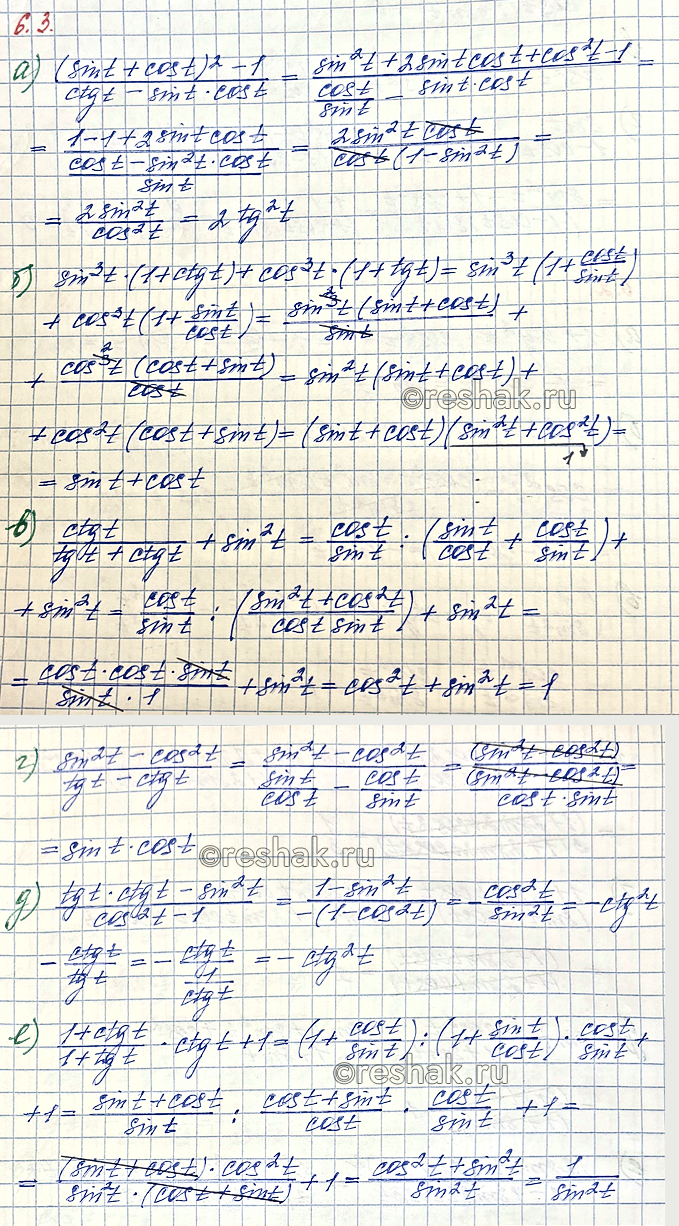 6.3.
а) ((sint + cost)² − 1)/(ctgt − sint·cost) = (sin²t + 2sintcost + cos²t − 1)/(cost/sint − sint·cost) =
= (1 − 1 + 2sintcost)/((cost − sin²t·cost)/sint) = (2sin²t cost)/(cost(1 − sin²t)) =
= 2sin²t/cos²t = 2tg²t
б) sin³t·(1 + ctgt) + cos³t·(1 + tgt) = sin³t(1 + cost/sint)
+ cos³t(1 + sint/cost) = (sin³t(sint + cost))/sint +
+ (cos³t(cost + sint))/cost = sin²t(sint + cost) +
+ cos²t(cost + sint) = (sint + cost)(sin²t + cos²t) =
1
= sint + cost
в) ctgt/(tgt + ctgt) + sin²t = cost/sint : (sint/cost + cost/sint) +
+ sin²t = cost/sint : ((sin²t + cos²t)/(cost sint)) + sin²t =
= (cost·cost·sint)/(sint·1) + sin²t = cos²t + sin²t = 1
г) (sin²t − cos²t)/(tgt − ctgt) = (sin²t − cos²t)/(sint/cost − cost/sint) = (sin²t − cos²t)/((sin²t − cos²t)/(cost·sint)) =
= sint·cost
д) (tgt·ctgt − sin²t)/(cos²t − 1) = (1 − sin²t)/(−(1 − cos²t)) = −cos²t/sin²t = −ctg²t
− ctgt/tgt = − ctgt/(1/ctgt) = − ctg²t
е) (1 + ctgt)/(1 + tgt) · ctgt + 1 = (1 + cost/sint) : (1 + sint/cost) · cost/sint +
+ 1 = (sint + cost)/sint : (cost + sint)/cost · cost/sint + 1 =
= ((sint + cost)·cos²t)/(sin²t·(cost + sint)) + 1 = (cos²t + sin²t)/sin²t = 1/sin²t
©reshak.ru
©reshak.ru
©reshak.ru